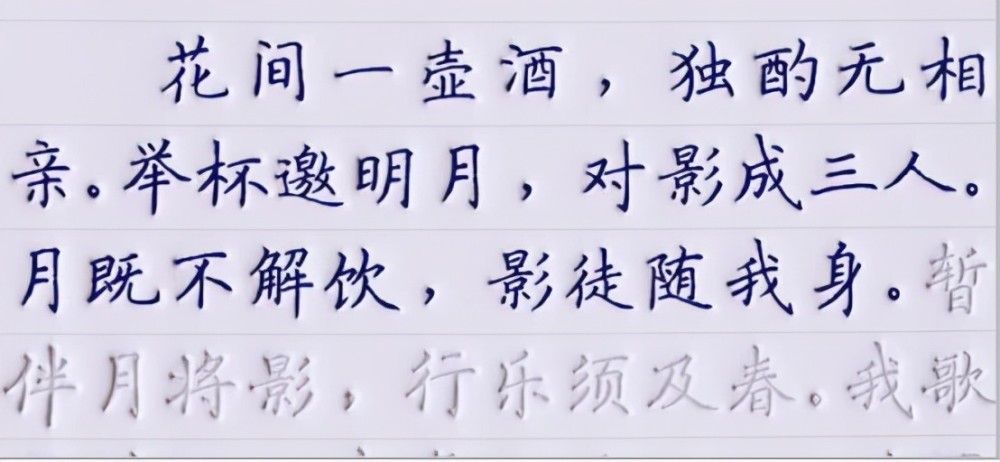 花间一壶酒，独酌无相
亲。举杯邀明月，对影成三人。
月既不解饮，影徒随我身。暂
伴月将影，行乐须及春。我歌